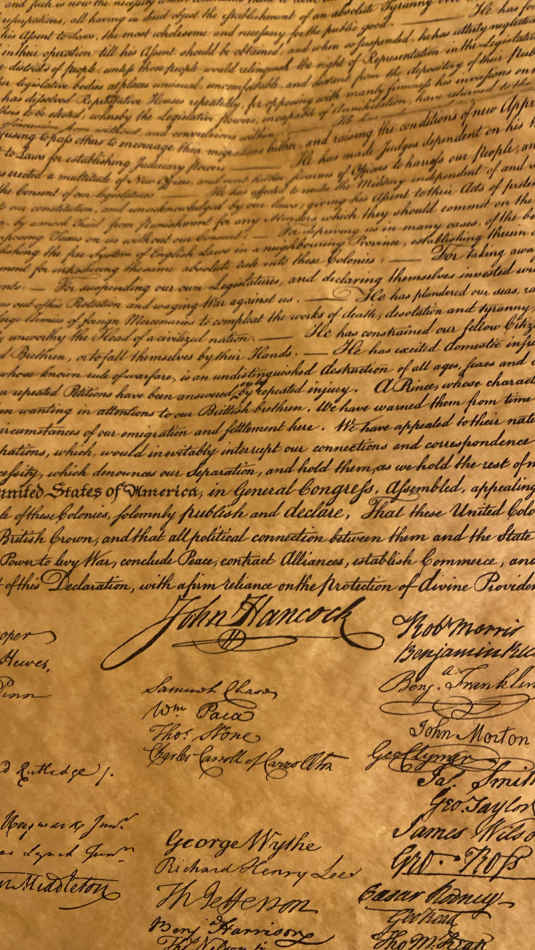 usurpations, all having in direct object the establishment of an absolute Tyranny over
his Assent to Laws, the most wholesome and necessary for the public good.
in their operation till his Assent should be obtained; and when so suspended, he has utterly neglected
districts of people, unless those people would relinquish the right of Representation in the Legislature
legislative bodies at places unusual, uncomfortable, and distant from the depository of their
has dissolved Representative Houses repeatedly, for opposing with manly firmness his invasions on
to be elected; whereby the Legislative powers, incapable of Annihilation, have returned to the
and convulsions within. —
to pass others to encourage their migrations hither, and raising the conditions of new
to Laws for establishing Judiciary powers — He has made Judges dependent on his
erected a multitude of New Offices, and sent hither swarms of Officers to harrass our people, and
the Consent of our legislatures. — He has affected to render the Military independent of and
our constitution, and unacknowledged by our laws; giving his Assent to their Acts of
by a mock Trial, from punishment for any Murders which they should commit on the
imposing Taxes on us without our Consent: — For depriving us in many cases, of the
the free System of English Laws in a neighbouring Province, establishing therein
for introducing the same absolute rule into these Colonies: — For taking away
— For suspending our own Legislatures, and declaring themselves invested
us out of his Protection and waging War against us. — He has plundered our seas,
Armies of foreign Mercenaries to compleat the works of death, desolation and tyranny,
unworthy the Head of a civilized nation. — He has constrained our fellow
Brethren, or to fall themselves by their Hands. — He has excited domestic
whose known rule of warfare, is an undistinguished destruction of all ages, sexes and
repeated Petitions have been answered only by repeated injury. A Prince, whose
wanting in attentions to our Brittish brethren. We have warned them from time
circumstances of our emigration and settlement here. We have appealed to their
which, would inevitably interrupt our connections and correspondence
which denounces our Separation, and hold them, as we hold the rest of
united States of America, in General Congress, Assembled, appealing
of these Colonies, solemnly publish and declare, That these United
British Crown, and that all political connection between them and the State
Power to levy War, conclude Peace, contract Alliances, establish Commerce, and
of this Declaration, with a firm reliance on the protection of divine
John Hancock
Hewes,
Penn
Samuel Chase
Wm. Paca
Thos. Stone
Charles Carroll of Carrollton
Rutledge
Heyward Junr.
Lynch Junr.
Middleton
George Wythe
Richard Henry Lee
Th Jefferson
Benj Harrison
Ths Nelson jr
Robt Morris
Benjamin
Benj. Franklin
John Morton
Geo Clymer
Jas. Smith
Geo. Taylor
James Wilson
Geo. Ross
Caesar Rodney
Geo Read
Tho M:Kean